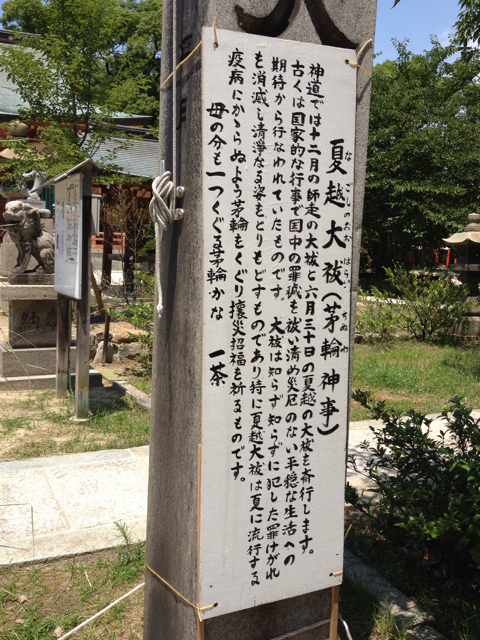 夏越大祓(茅輪神事)
なごしのおおはらい ちぬわ
神道では十二月の師走の大祓と六月三十日の夏越の大祓を斎行します。
古くは国家的な行事で国中の罪穢を祓い清め災厄のない平穏な生活への
期待から行なわれていたものです。大祓は知らず知らずに犯した罪けがれ
も消滅し清浄なる姿をとりもどすものであり特に夏越大祓は夏に流行する
疫病にかゝらぬよう茅輪をくぐり攘災招福を祈るものです。
母の分も一つくぐる茅輪かな 一茶